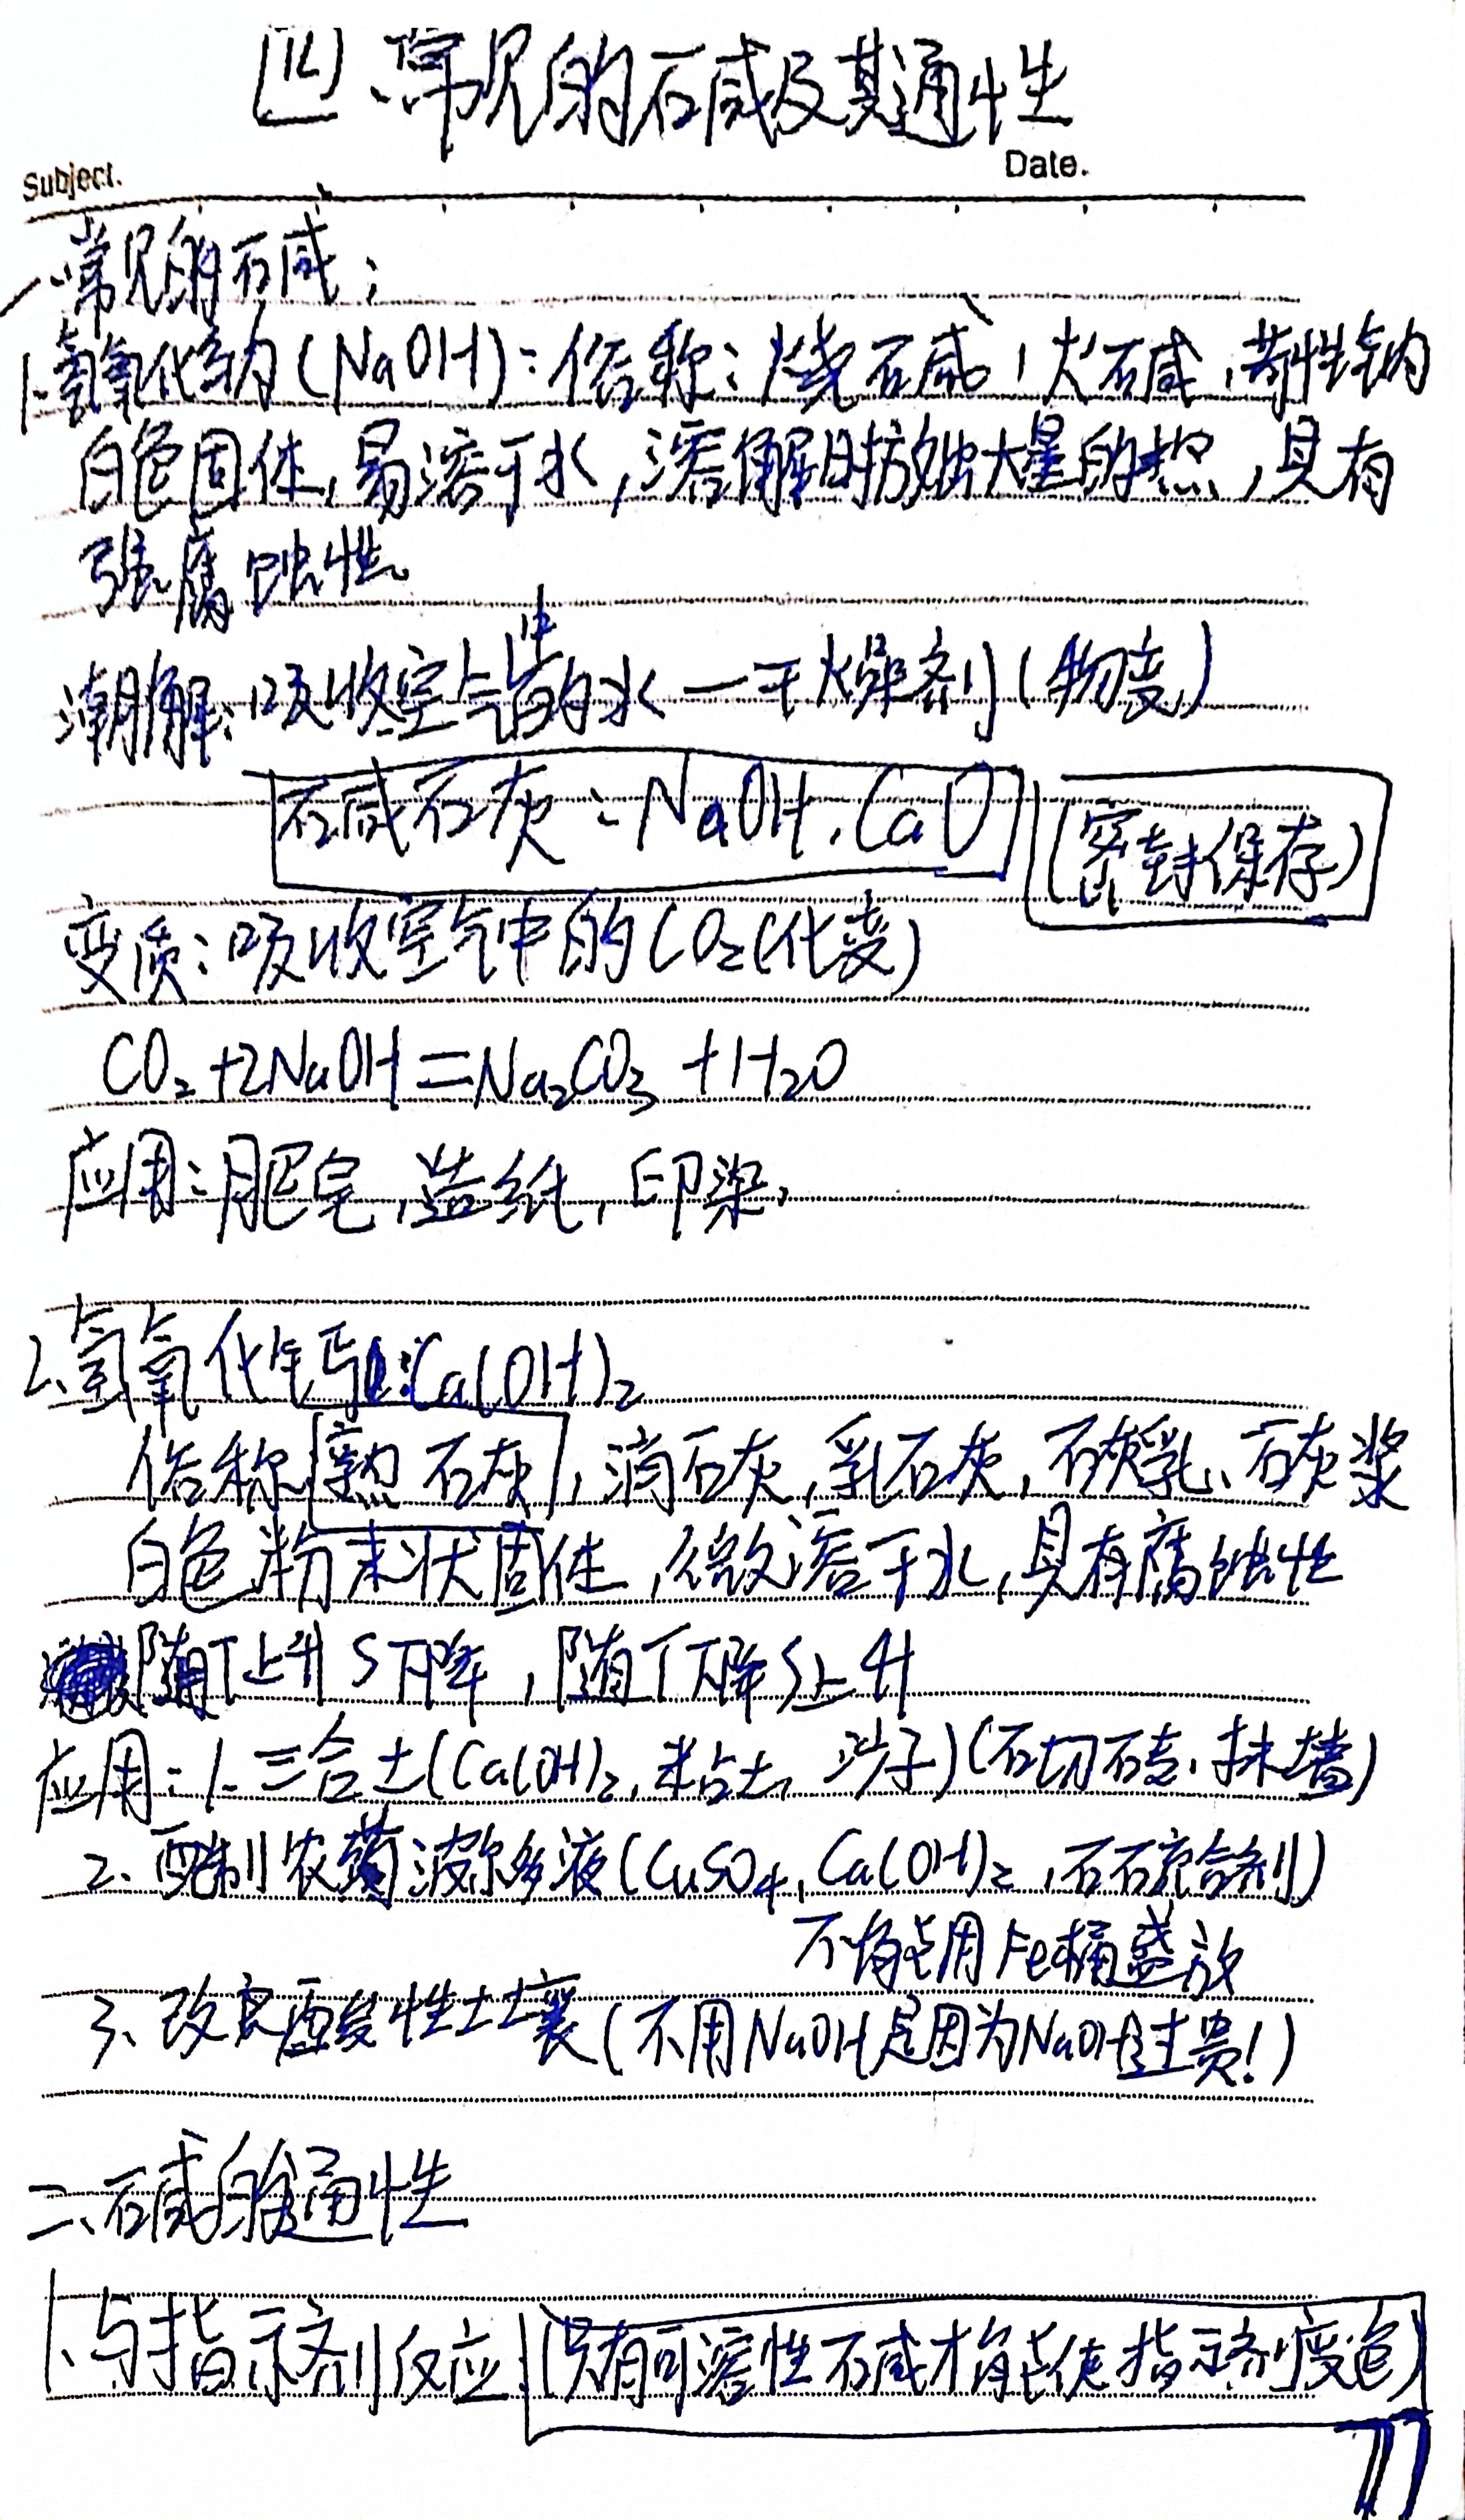 四、常见的碱及其通性
Subject.
Date.
一、常见的碱：
1.氢氧化钠(NaOH)：俗称：烧碱、火碱、苛性钠
白色固体,易溶于水,溶解时放出大量的热,具有
强腐蚀性.
潮解:吸收空气中的水—干燥剂(物变)
碱石灰:NaOH,CaO
(密封保存)
变质:吸收空气中的CO₂(化变)
CO₂+2NaOH=Na₂CO₃+H₂O
应用:肥皂,造纸,印染,
2.氢氧化钙:Ca(OH)₂
俗称熟石灰,消石灰,乳石灰,石灰乳、石灰浆
白色粉末状固体,微溶于水,具有腐蚀性
随T上升S下降,随T下降S上升
应用:1.三合土(Ca(OH)₂,粘土,沙子)(石切砖、抹墙)
2.配制农药波尔多液(CuSO₄,Ca(OH)₂,石硫合剂)
不能用Fe桶盛放
3、改良酸性土壤(不用NaOH是因为NaOH过贵!)
二、碱的通性
1、与指示剂反应(只有可溶性碱才能使指示剂变色)